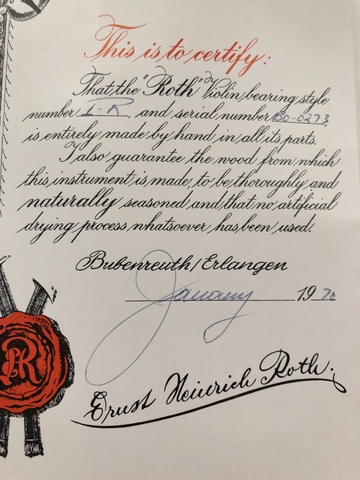 This is to certify:
That the "Roth" Violin bearing style
number I-R, and serial number
is entirely made by hand in all its parts.
I also guarantee the wood from which
this instrument is made, to be thoroughly and
naturally seasoned and that no artificial
drying process whatsoever has been used.
Bubenreuth/Erlangen
January 1970
R
Ernst Heinrich Roth.